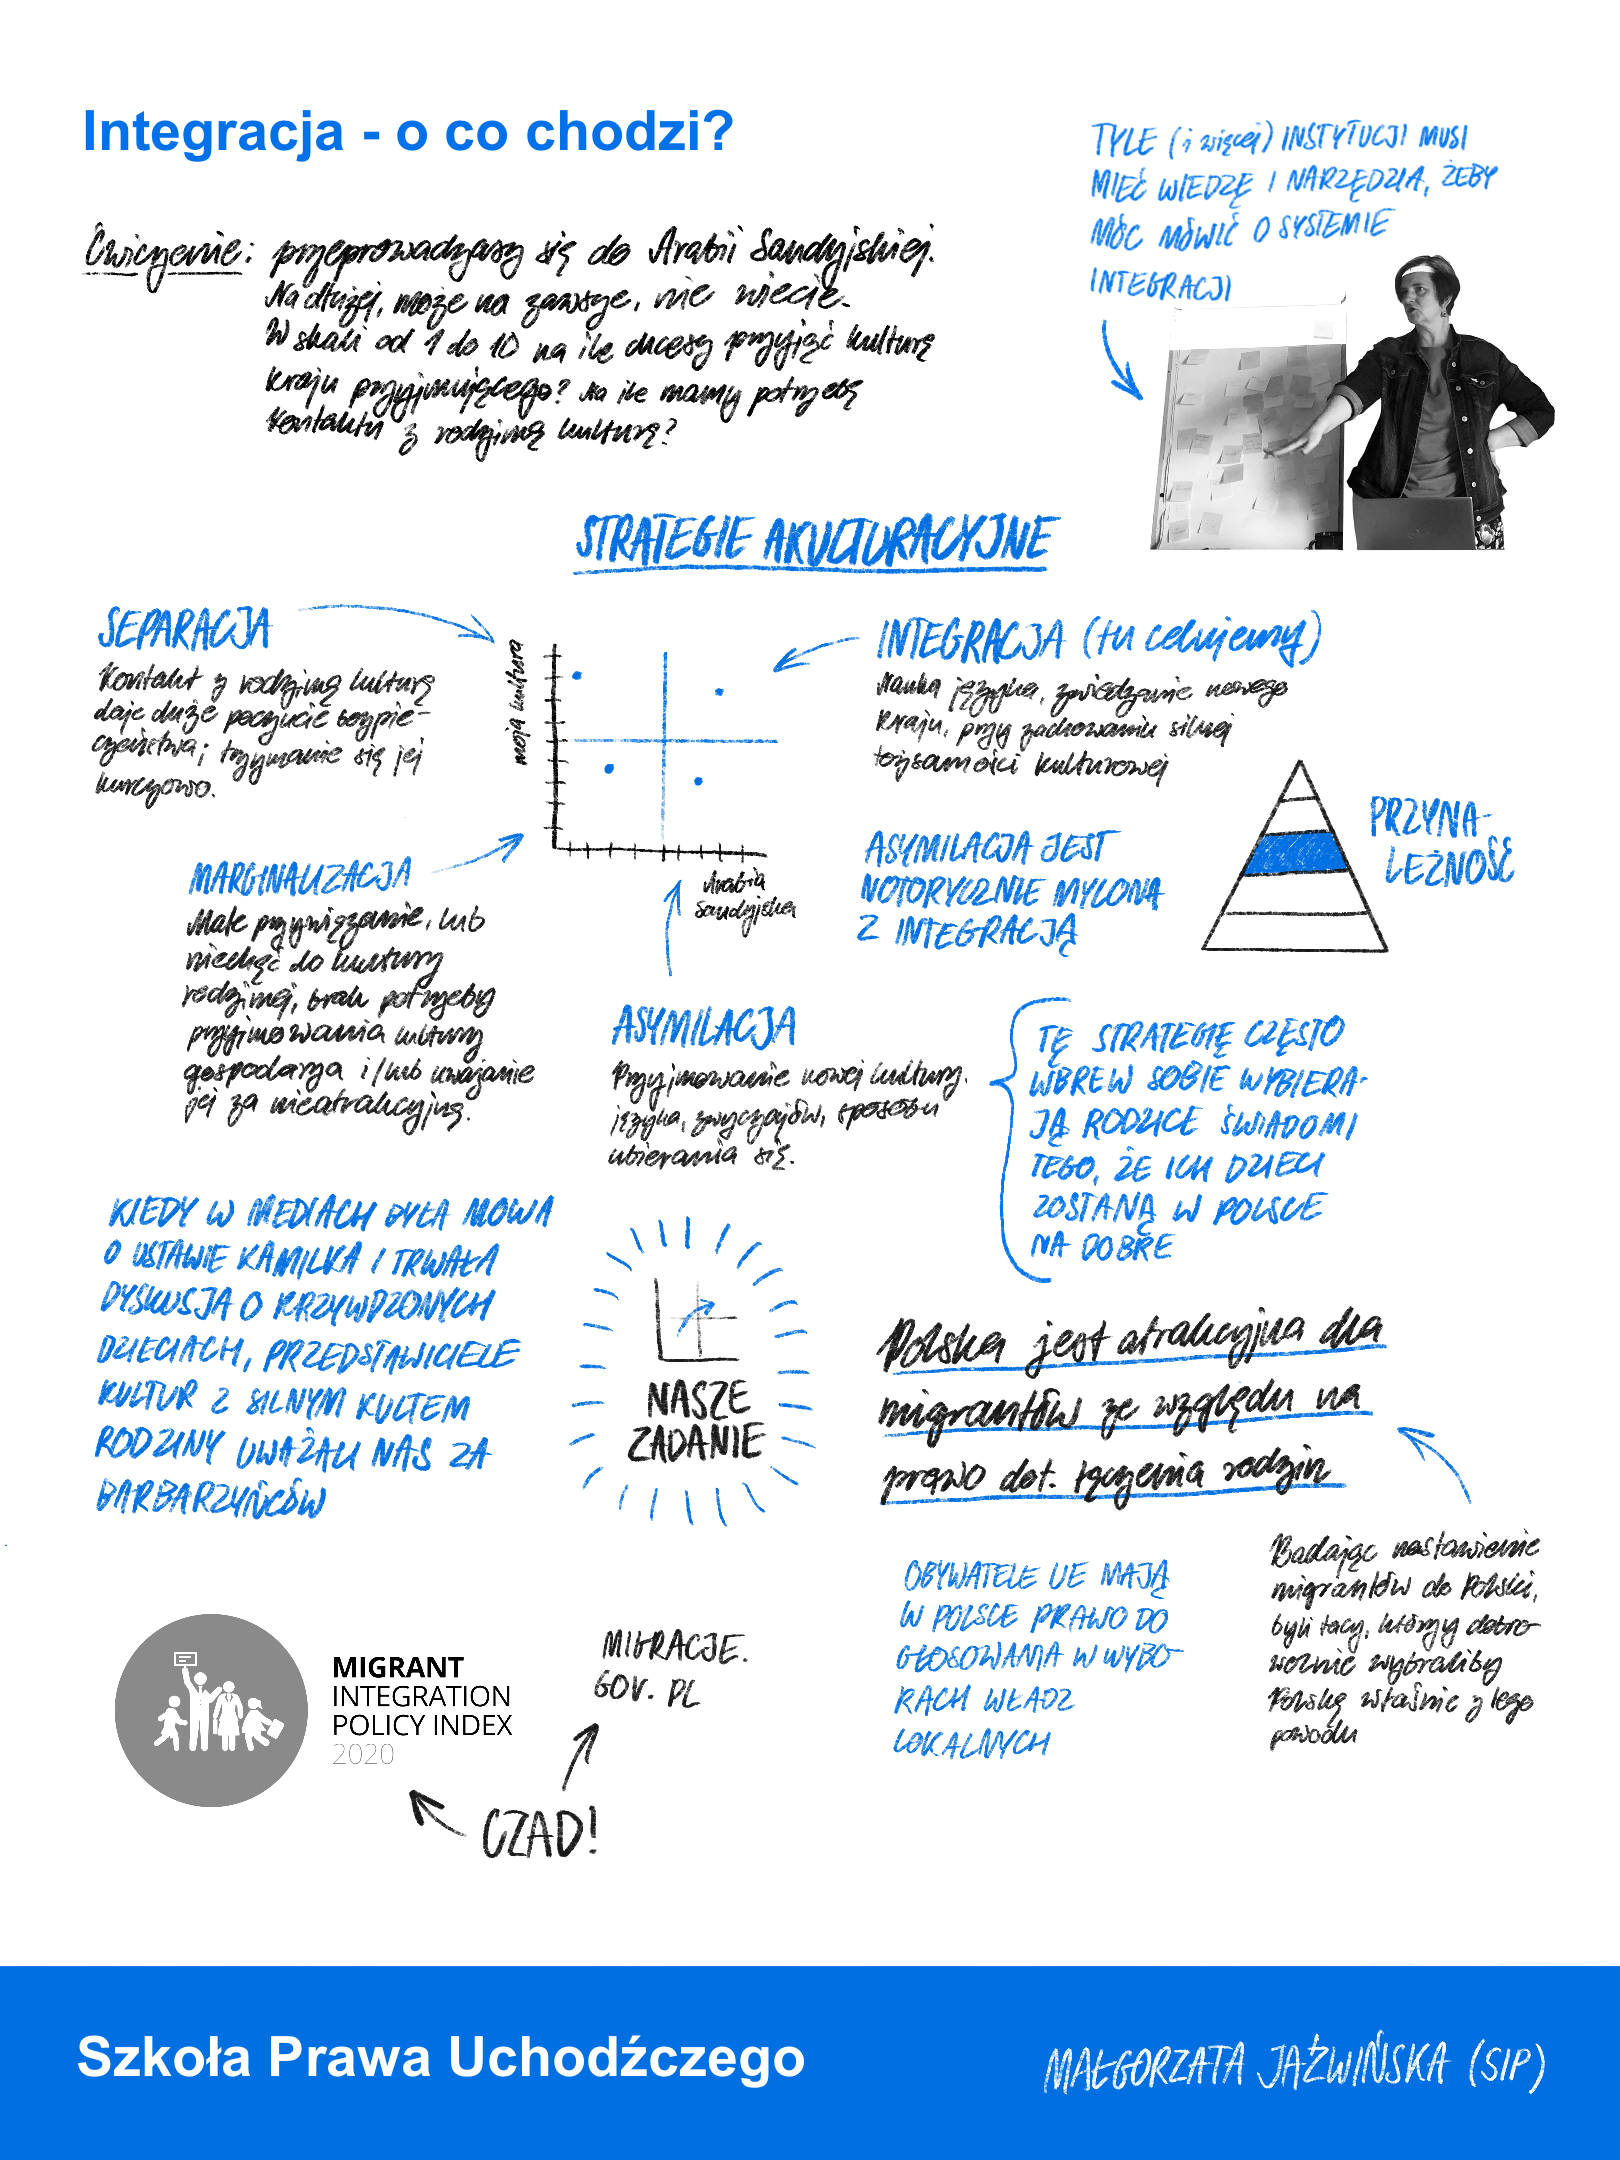 Integracja - o co chodzi?
TYLE (i więcej) INSTYTUCJI MUSI
MIEĆ WIEDZĘ I NARZĘDZIA, ŻEBY
MÓC MÓWIĆ O SYSTEMIE
INTEGRACJI
Ćwiczenie: przeprowadzasz się do Arabii Saudyjskiej.
Na dłużej, może na zawsze, nie wiecie.
W skali od 1 do 10 na ile chcesz przyjąć kulturę
kraju przyjmującego? Na ile mamy potrzebę
kontaktu z rodzimą kulturą?
STRATEGIE AKULTURACYJNE
SEPARACJA
Kontakt z rodzimą kulturą
daje duże poczucie bezpie-
czeństwa; trzymanie się jej
kurczowo.
moja kultura
Arabia
Saudyjska
INTEGRACJA (tu celujemy)
Nauka języka, zwiedzanie nowego
kraju, przy zachowaniu silnej
tożsamości kulturowej
PRZYNA-
LEŻNOŚĆ
ASYMILACJA JEST
NOTORYCZNIE MYLONA
Z INTEGRACJĄ
MARGINALIZACJA
Małe przywiązanie, lub
niechęć do kultury
rodzimej, brak potrzeby
przyjmowania kultury
gospodarza i/lub uważanie
jej za nieatrakcyjną.
ASYMILACJA
Przyjmowanie nowej kultury.
języka, zwyczajów, sposobu
ubierania się.
TĘ STRATEGIĘ CZĘSTO
WBREW SOBIE WYBIERA-
JĄ RODZICE ŚWIADOMI
TEGO, ŻE ICH DZIECI
ZOSTANĄ W POLSCE
NA DOBRE
KIEDY W MEDIACH BYŁA MOWA
O USTAWIE KAMILKA I TRWAŁA
DYSKUSJA O KRZYWDZONYCH
DZIECIACH, PRZEDSTAWICIELE
KULTUR Z SILNYM KULTEM
RODZINY UWAŻALI NAS ZA
BARBARZYŃCÓW
NASZE
ZADANIE
Polska jest atrakcyjna dla
migrantów ze względu na
prawo dot. łączenia rodzin
Badając nastawienie
migrantów do Polski,
byli tacy, którzy dobro-
wolnie wybraliby
Polskę właśnie z tego
powodu
OBYWATELE UE MAJĄ
W POLSCE PRAWO DO
GŁOSOWANIA W WYBO-
RACH WŁADZ
LOKALNYCH
MIGRANT
INTEGRATION
POLICY INDEX
2020
MIGRACJE.
GOV. PL
CZAD!
Szkoła Prawa Uchodźczego
MAŁGORZATA JAŹWIŃSKA (SIP)